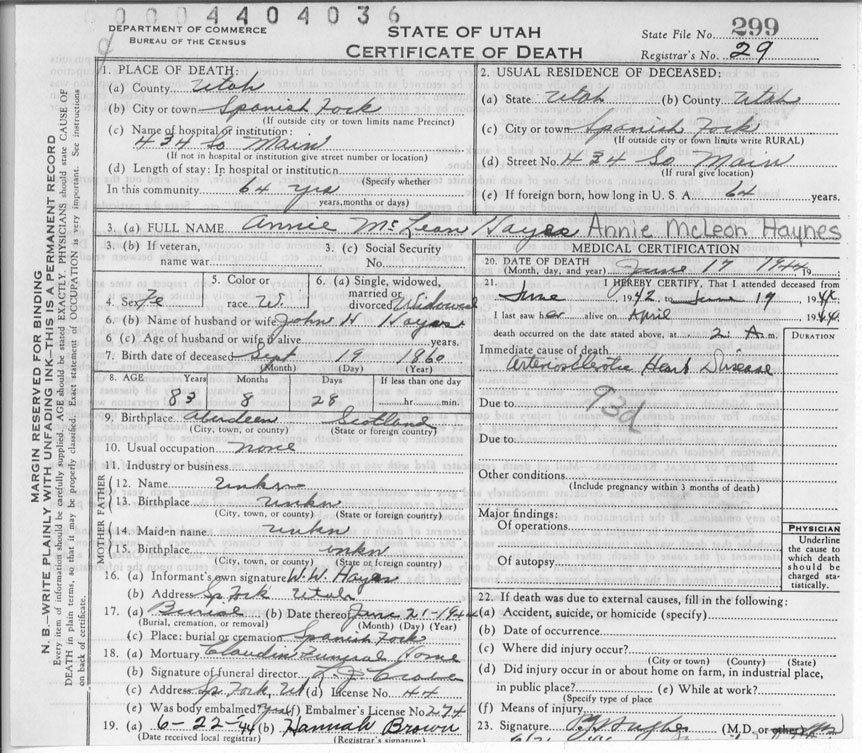 0004404036
DEPARTMENT OF COMMERCE
BUREAU OF THE CENSUS
STATE OF UTAH
CERTIFICATE OF DEATH
State File No. 299
Registrar's No. 29
MARGIN RESERVED FOR BINDING
N. B.—WRITE PLAINLY WITH UNFADING INK—THIS IS A PERMANENT RECORD
Every item of information should be carefully supplied. AGE should be stated EXACTLY. PHYSICIANS should state CAUSE OF
DEATH in plain terms, so that it may be properly classified. Exact statement of OCCUPATION is very important. See instructions
on back of certificate.
1. PLACE OF DEATH:
(a) County Utah
(b) City or town Spanish Fork
(If outside city or town limits name Precinct)
(c) Name of hospital or institution:
434 So Main
(If not in hospital or institution give street number or location)
(d) Length of stay: In hospital or institution
(Specify whether
In this community 64 yrs
years, months or days)
2. USUAL RESIDENCE OF DECEASED:
(a) State Utah (b) County Utah
(c) City or town Spanish Fork
(If outside city or town limits write RURAL)
(d) Street No. 434 So Main
(If rural give location)
(e) If foreign born, how long in U. S. A. 64 years.
3. (a) FULL NAME Annie McLean Hayes Annie McLeon Haynes
3. (b) If veteran,
name war
3. (c) Social Security
No.
4. Sex Fe
5. Color or
race W.
6. (a) Single, widowed,
married or
divorced Widowed
6. (b) Name of husband or wife John H Hayes
6. (c) Age of husband or wife if alive years.
7. Birth date of deceased Sept 19 1860
(Month) (Day) (Year)
8. AGE Years Months Days If less than one day
83 8 28 hr. min.
9. Birthplace Aberdeen Scotland
(City, town, or county) (State or foreign country)
10. Usual occupation none
11. Industry or business
FATHER
12. Name unkn
13. Birthplace unkn
(City, town, or county) (State or foreign country)
MOTHER
14. Maiden name unkn
15. Birthplace unkn
(City, town, or county) (State or foreign country)
16. (a) Informant's own signature W. W. Hayes
(b) Address Sp Fork Utah
17. (a) Burial (b) Date thereof June 21-1944
(Burial, cremation, or removal) (Month) (Day) (Year)
(c) Place: burial or cremation Spanish Fork
18. (a) Mortuary Claudin Funeral Home
(b) Signature of funeral director
(c) Address Sp. Fork, Ut (d) License No. 44
(e) Was body embalmed? yes (f) Embalmer's License No. 274
19. (a) 6-22-44 (b) Hannah Brown
(Date received local registrar) (Registrar's signature)
MEDICAL CERTIFICATION
20. DATE OF DEATH
(Month, day, and year) June 17 1944 19
21. I HEREBY CERTIFY, That I attended deceased from
June 1942, to June 17 1944
I last saw her alive on April 1944.
death occurred on the date stated above, at 2: A.m.
DURATION
Immediate cause of death
Arteriosclerotic Heart Disease
Due to
93d
Due to
Other conditions
(Include pregnancy within 3 months of death)
Major findings:
Of operations
Of autopsy
PHYSICIAN
Underline
the cause to
which death
should be
charged sta-
tistically.
22. If death was due to external causes, fill in the following:
(a) Accident, suicide, or homicide (specify)
(b) Date of occurrence
(c) Where did injury occur?
(City or town) (County) (State)
(d) Did injury occur in or about home on farm, in industrial place,
in public place? (e) While at work?
(Specify type of place
(f) Means of injury
23. Signature Hughes (M.D. or other)